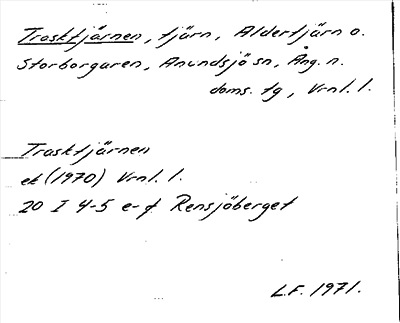 Trasktjärnen, tjärn, Aldertjärn o.
Storborgaren, Anundsjö sn, Ång. n.
doms. tg, Vrnl. l.
Trasktjärnen
ek (1970) Vrnl. l.
20 I 4-5 e-f Rensjöberget
L.F. 1971.